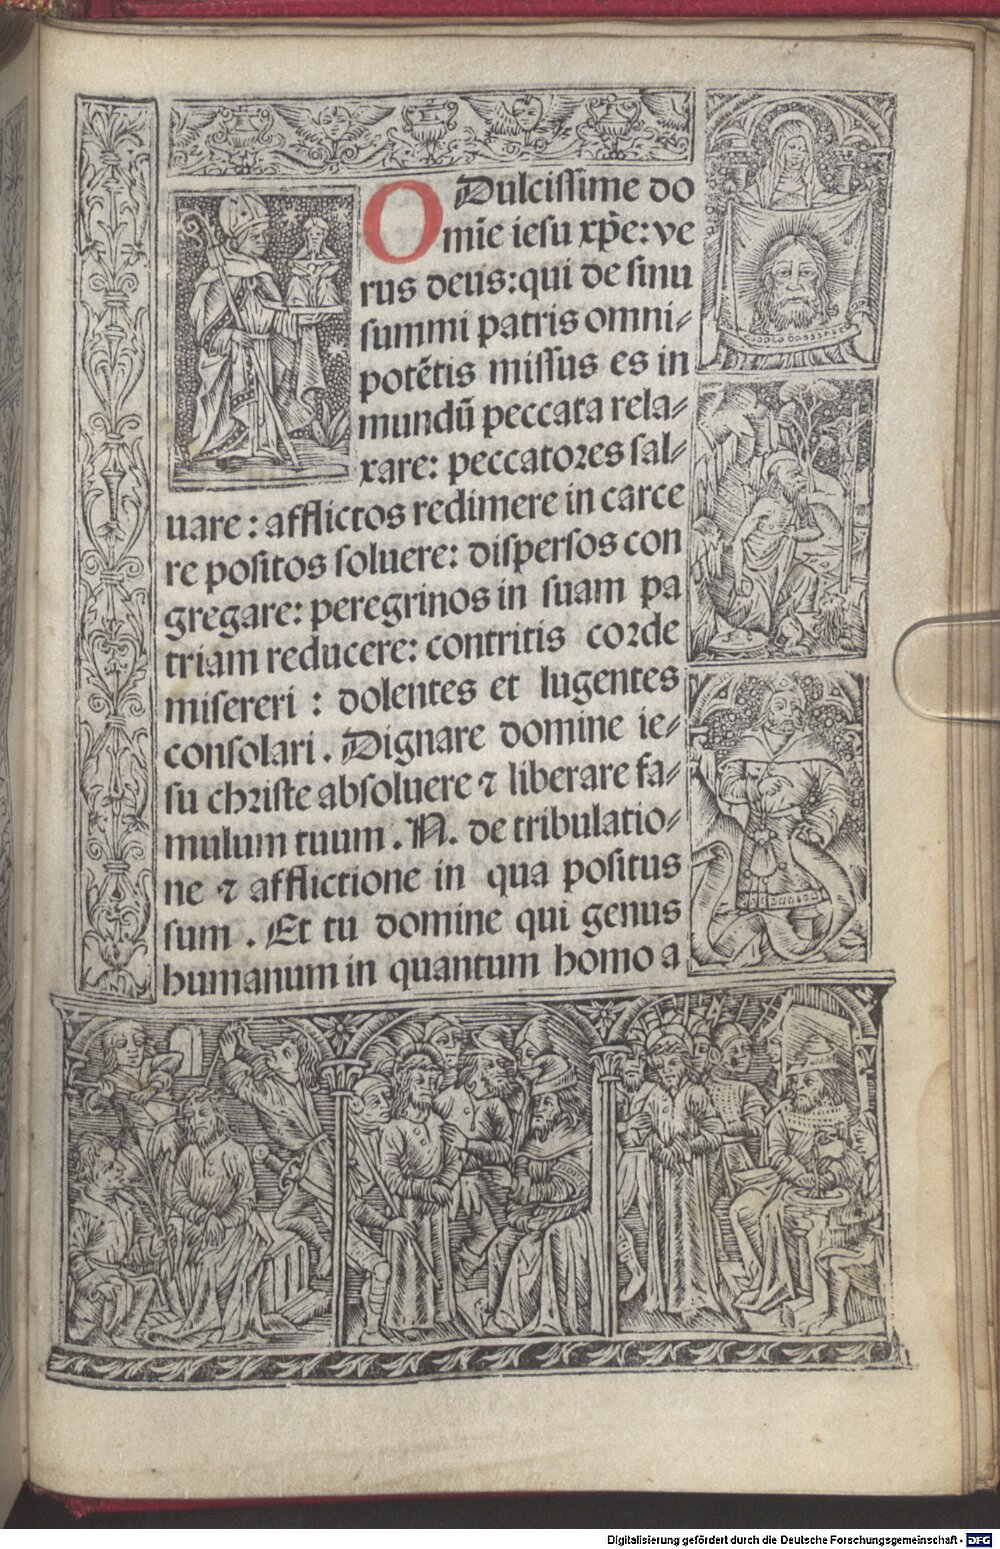 O Dulcissime do
mīe iesu xp̄e: ve
rus deus: qui de sinu
summi patris omni⸗
potētis missus es in
mundū peccata rela⸗
xare: peccatores sal⸗
uare : afflictos redimere in carce
re positos soluere: dispersos con
gregare: peregrinos in suam pa
triam reducere: contritis corde
misereri : dolentes et lugentes
consolari . Dignare domine ie⸗
su christe absoluere ⁊ liberare fa⸗
mulum tuum . N. de tribulatio⸗
ne ⁊ afflictione in qua positus
sum . Et tu domine qui genus
humanum in quantum homo a
Digitalisierung gefördert durch die Deutsche Forschungsgemeinschaft - DFG